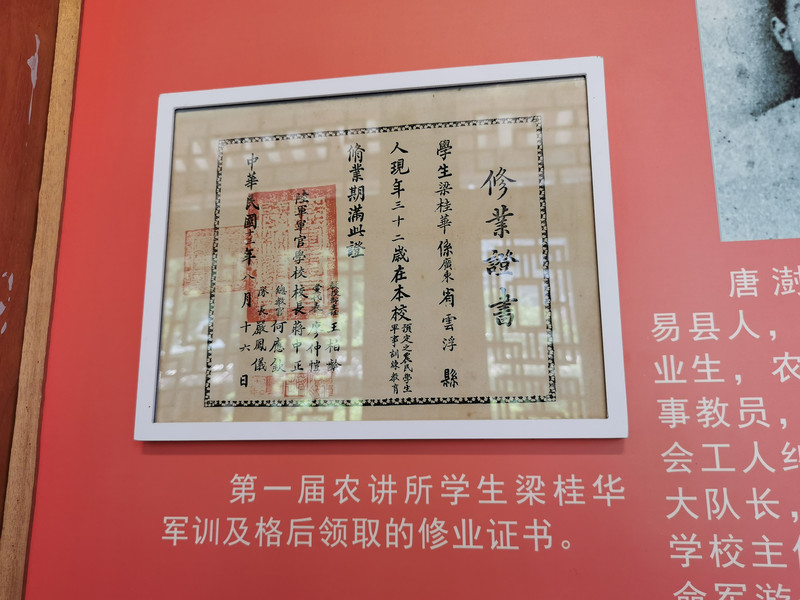 修業證書
學生梁桂華係廣東省雲浮縣
人現年三十二歲在本校預定之農民學生軍事訓練教育
脩業期滿此證
陸軍軍官學校校長蔣中正
黨代表廖仲愷
王柏齡
總教官何應欽
隊長嚴鳳儀
中華民國十三年八月十六日
第一届农讲所学生梁桂华
军训及格后领取的修业证书。
唐澍
易县人，
业生，农
事教员，
会工人纠
大队长，
学校主任
命军游